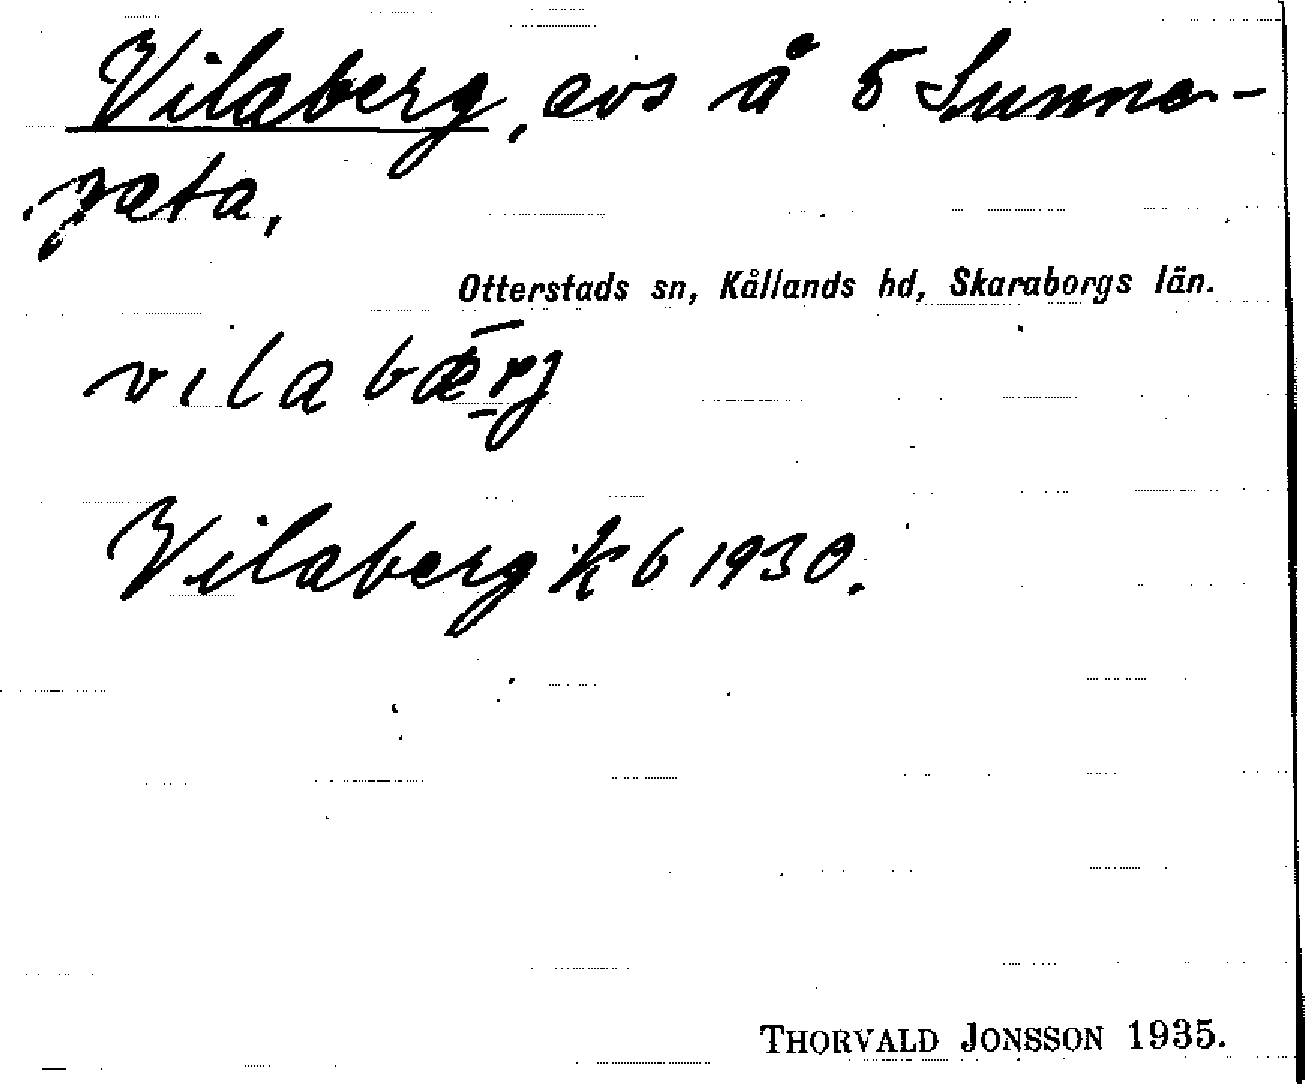 Vilaberg, avs å 5 Sunna-
gata,
Otterstads sn, Kållands hd, Skaraborgs län.
vilabærj
Vilaberg kb 1930.
THORVALD JONSSON 1935.